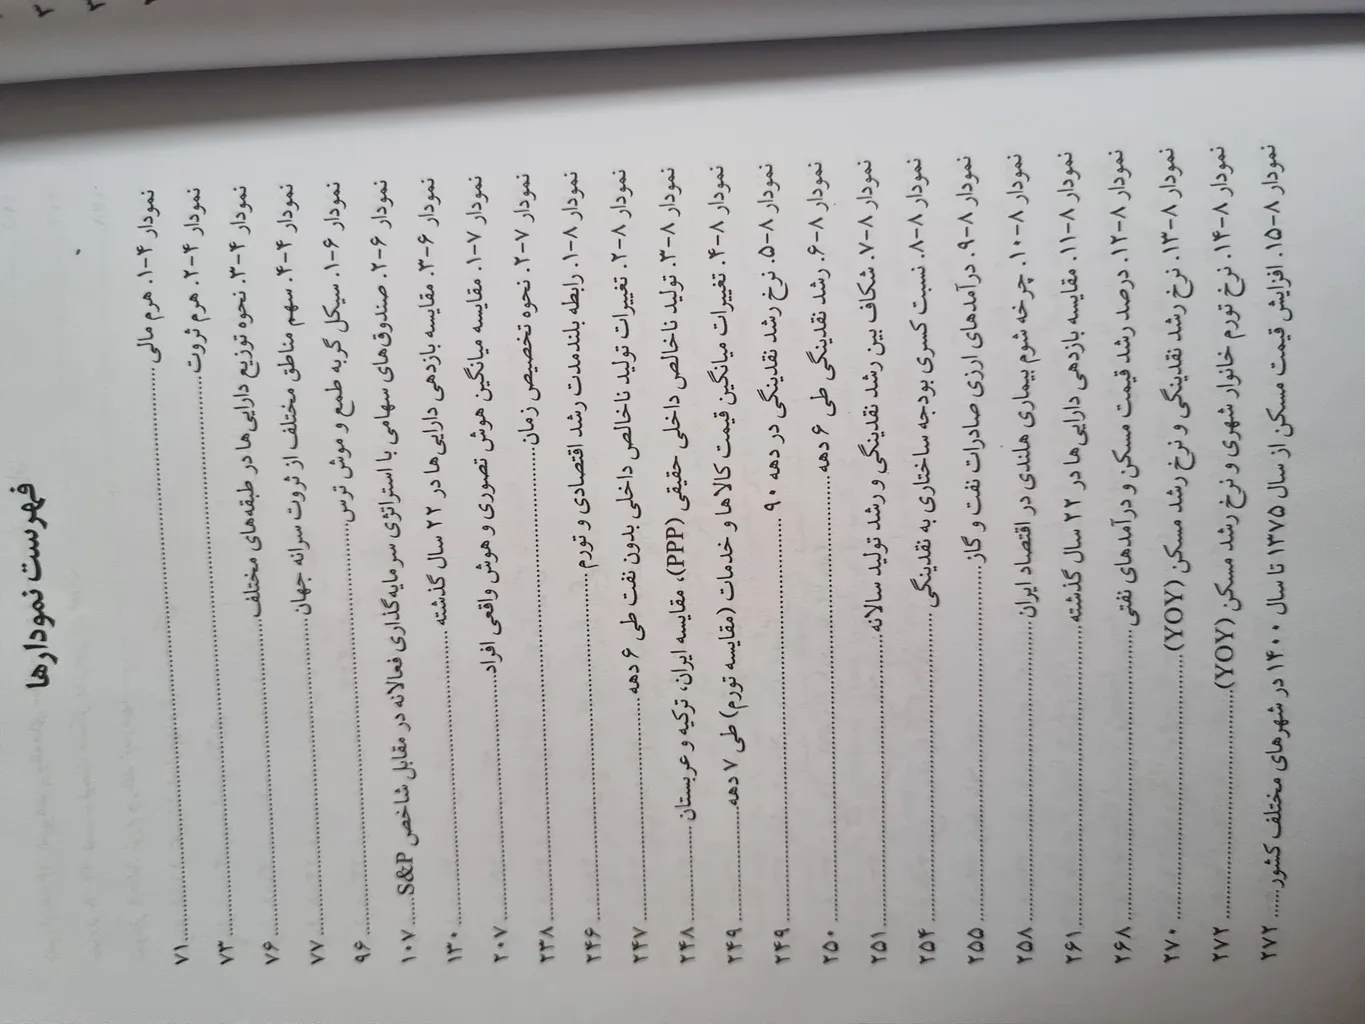 فهرست نمودارها
نمودار ۴-۱. هرم مالی ۷۱
نمودار ۴-۲. هرم ثروت ۷۳
نمودار ۴-۳. نحوه توزیع دارایی‌ها در طبقه‌های مختلف ۷۶
نمودار ۴-۴. سهم مناطق مختلف از ثروت سرانه جهان ۷۷
نمودار ۶-۱. سیکل گربه طمع و موش ترس ۹۶
نمودار ۶-۲. صندوق‌های سهامی با استراتژی سرمایه‌گذاری فعالانه در مقابل شاخص S&P ۱۰۷
نمودار ۶-۳. مقایسه بازدهی دارایی‌ها در ۲۲ سال گذشته ۱۳۰
نمودار ۷-۱. مقایسه میانگین هوش تصوری و هوش واقعی افراد ۲۰۷
نمودار ۷-۲. نحوه تخصیص زمان ۲۳۸
نمودار ۸-۱. رابطه بلندمدت رشد اقتصادی و تورم ۲۴۶
نمودار ۸-۲. تغییرات تولید ناخالص داخلی بدون نفت طی ۶ دهه ۲۴۷
نمودار ۸-۳. تولید ناخالص داخلی حقیقی (PPP)، مقایسه ایران، ترکیه و عربستان ۲۴۸
نمودار ۸-۴. تغییرات میانگین قیمت کالاها و خدمات (مقایسه تورم) طی ۷ دهه ۲۴۹
نمودار ۸-۵. نرخ رشد نقدینگی در دهه ۹۰ ۲۴۹
نمودار ۸-۶. رشد نقدینگی طی ۶ دهه ۲۵۰
نمودار ۸-۷. شکاف بین رشد نقدینگی و رشد تولید سالانه ۲۵۱
نمودار ۸-۸. نسبت کسری بودجه ساختاری به نقدینگی ۲۵۴
نمودار ۸-۹. درآمدهای ارزی صادرات نفت و گاز ۲۵۵
نمودار ۸-۱۰. چرخه شوم بیماری هلندی در اقتصاد ایران ۲۵۸
نمودار ۸-۱۱. مقایسه بازدهی دارایی‌ها در ۲۲ سال گذشته ۲۶۱
نمودار ۸-۱۲. درصد رشد قیمت مسکن و درآمدهای نفتی ۲۶۸
نمودار ۸-۱۳. نرخ رشد نقدینگی و نرخ رشد مسکن (YOY) ۲۷۰
نمودار ۸-۱۴. نرخ تورم خانوار شهری و نرخ رشد مسکن (YOY) ۲۷۲
نمودار ۸-۱۵. افزایش قیمت مسکن از سال ۱۳۷۵ تا سال ۱۴۰۰ در شهرهای مختلف کشور ۲۷۲